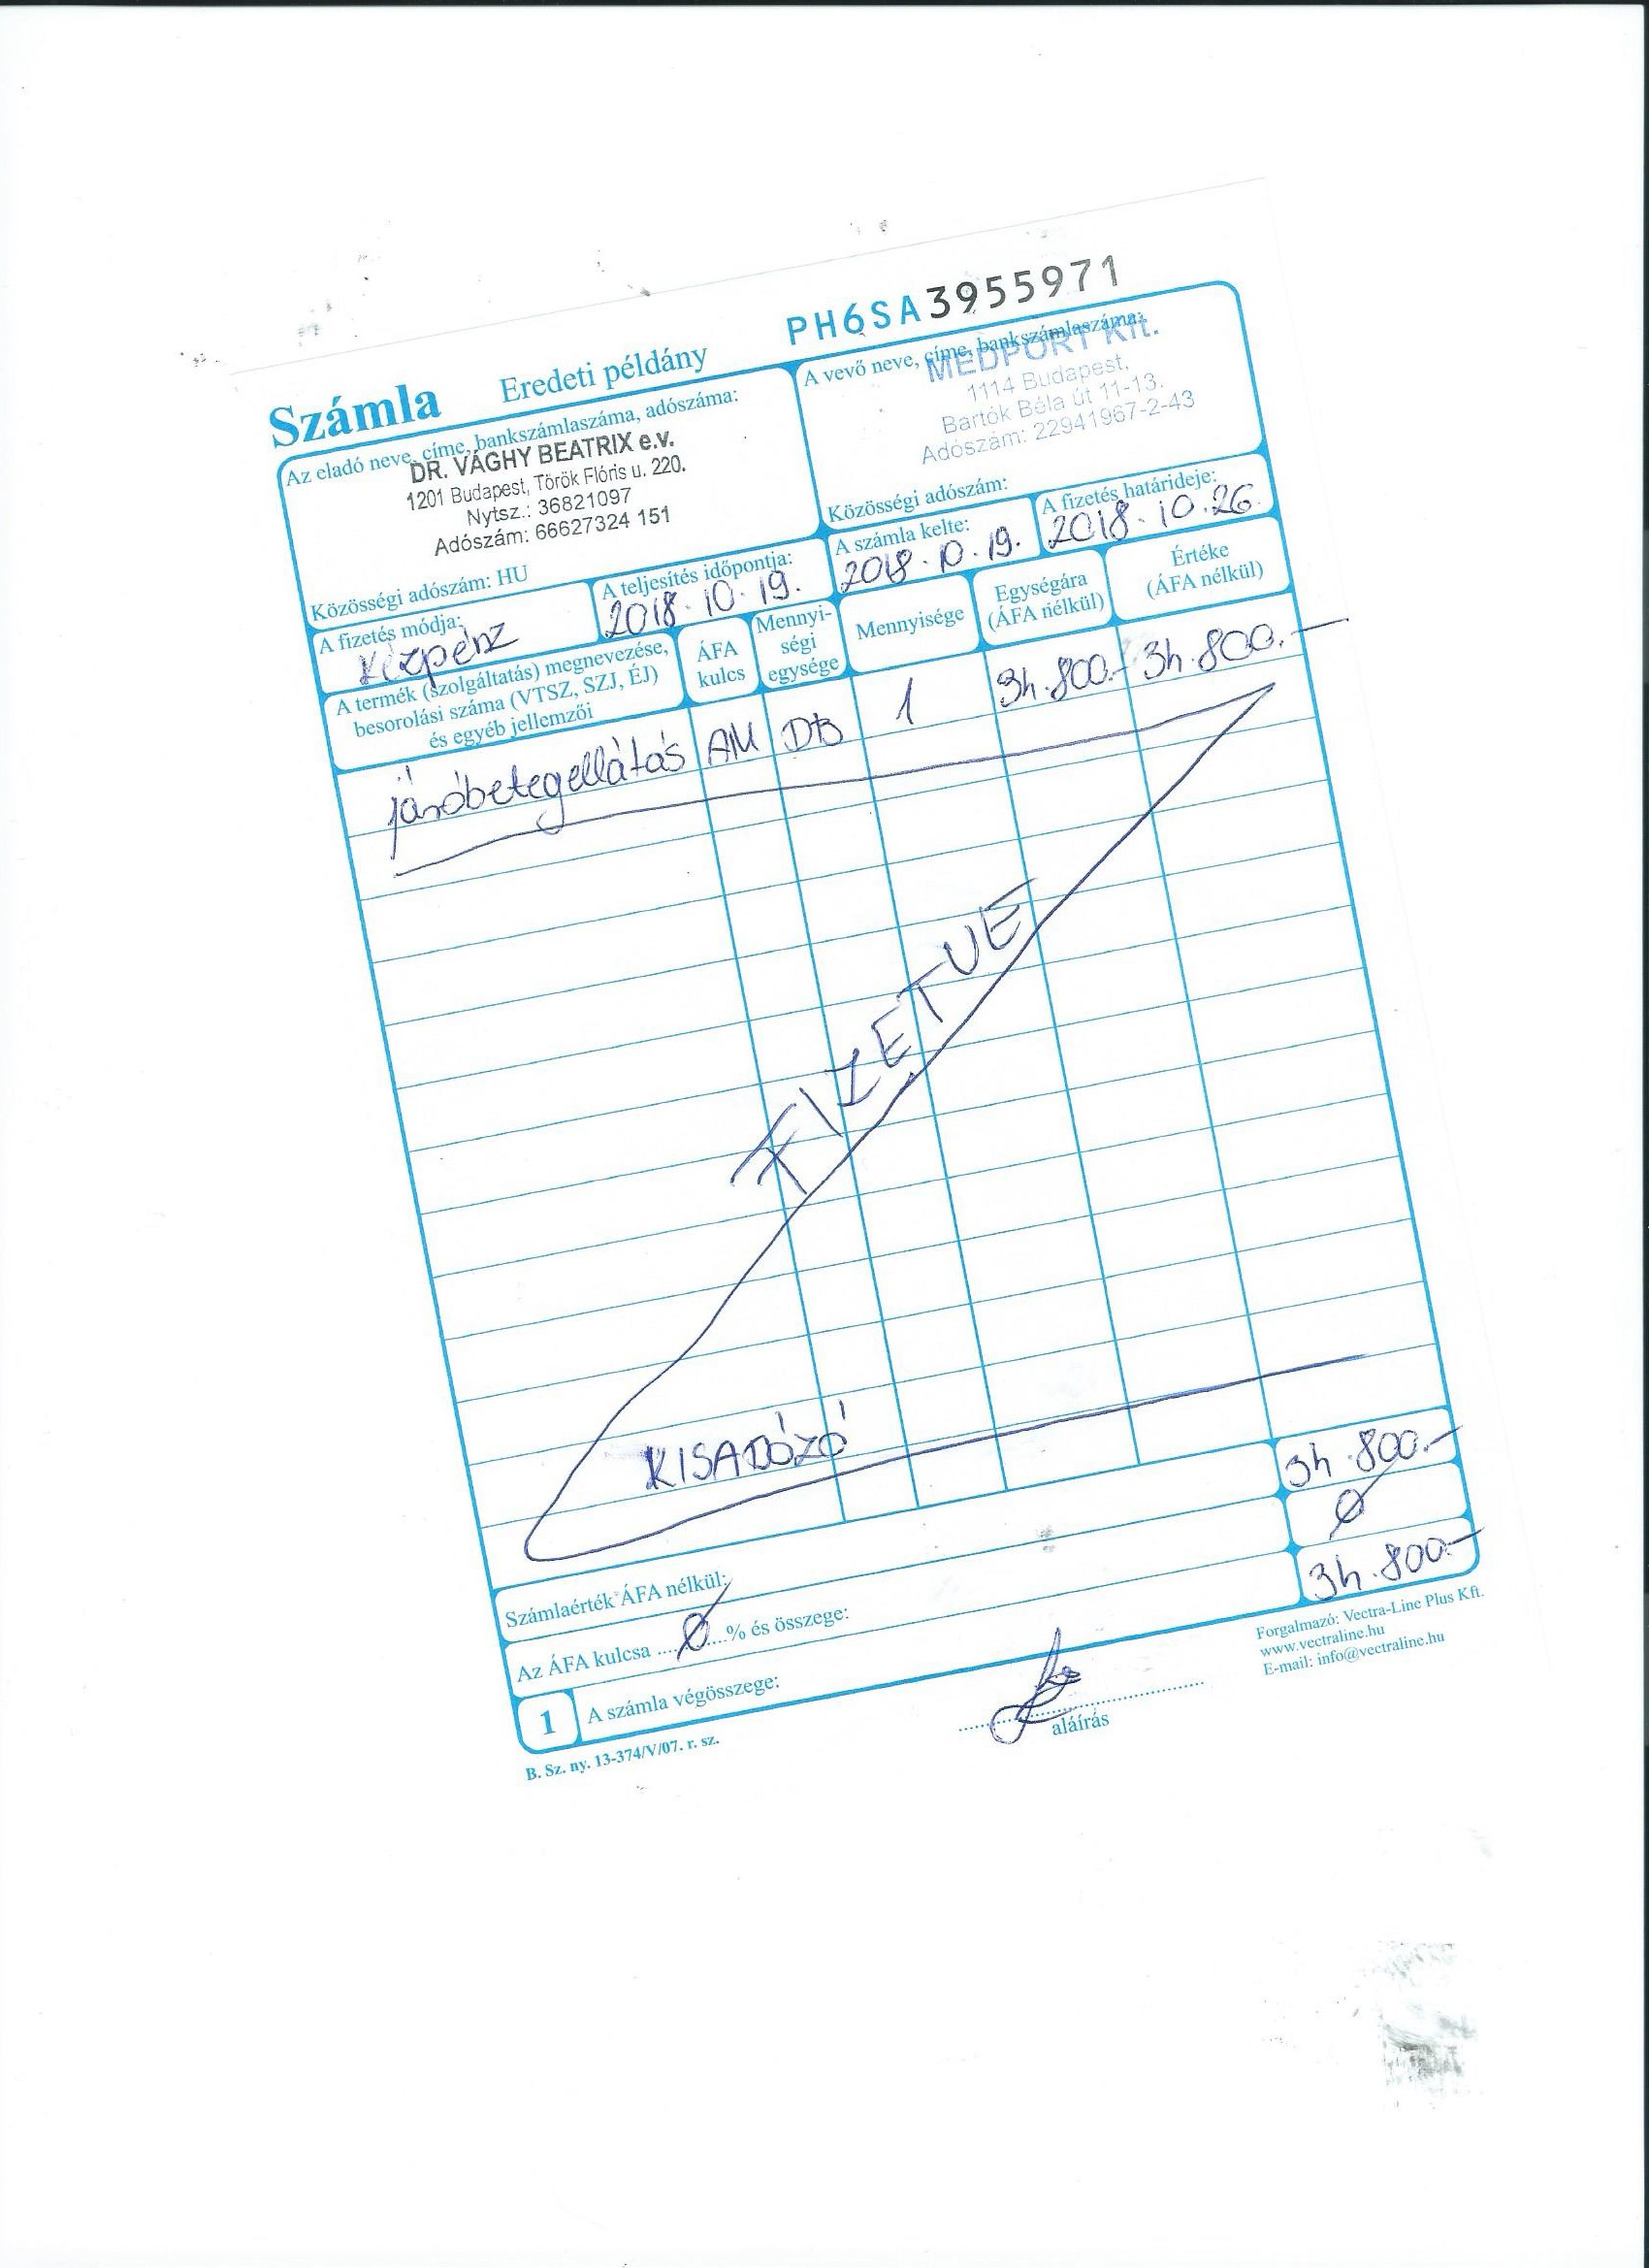 PH6SA3955971
Számla Eredeti példány
Az eladó neve, címe, bankszámlaszáma, adószáma:
DR. VÁGHY BEATRIX e.v.
1201 Budapest, Török Flóris u. 220.
Nytsz.: 36821097
Adószám: 66627324 151
Közösségi adószám: HU
A vevő neve, címe, bankszámlaszáma:
MEDPORT Kft.
1114 Budapest,
Bartók Béla út 11-13.
Adószám: 22941967-2-43
Közösségi adószám:
A fizetés módja:
Kézpénz
A teljesítés időpontja:
2018.10.19.
A számla kelte:
2018.10.19.
A fizetés határideje:
2018.10.26.
A termék (szolgáltatás) megnevezése,
besorolási száma (VTSZ, SZJ, ÉJ)
és egyéb jellemzői
ÁFA
kulcs
Mennyi-
ségi
egysége
Mennyisége
Egységára
(ÁFA nélkül)
Értéke
(ÁFA nélkül)
járóbetegellátás AM DB 1 34.800.- 34.800.-
FIZETVE
KISADÓZÓ
Számlaérték ÁFA nélkül: 34.800.-
Az ÁFA kulcsa ....Ø....% és összege: Ø
1 A számla végösszege: 34.800.-
B. Sz. ny. 13-374/V/07. r. sz.
aláírás
Forgalmazó: Vectra-Line Plus Kft.
www.vectraline.hu
E-mail: info@vectraline.hu